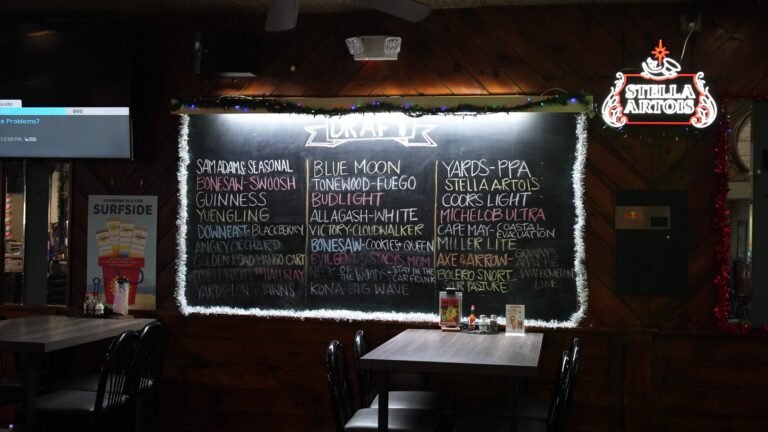 Guide
e Problems?
12:00 PM
SURFSIDE
STELLA
ARTOIS
DRAFT
SAM ADAMS SEASONAL
BONESAW-SWOOSH
GUINNESS
YUENGLING
DOWNEAST-BLACKBERRY
ANGRY ORCHARD
GOLDEN MANGO CART
HALLWAY
YARDS-LUV JAWNS
BLUE MOON
TONEWOOD-FUEGO
BUDLIGHT
ALLAGASH-WHITE
VICTORY-CLOUDWALKER
BONESAW-COOKIES+QUEEN
EVIL GENIUS-STACY'S MOM
NECK OF THE WOODS-STAY IN THE CAR FRANK
KONA-BIG WAVE
YARDS-PPA
STELLA ARTOIS
COORS LIGHT
MICHELOB ULTRA
CAPE MAY-COASTAL
EVACUATION
MILLER LITE
AXE & ARROW-
BOLERO SNORT-
AIR PASTURE
WATERMELON
LIME